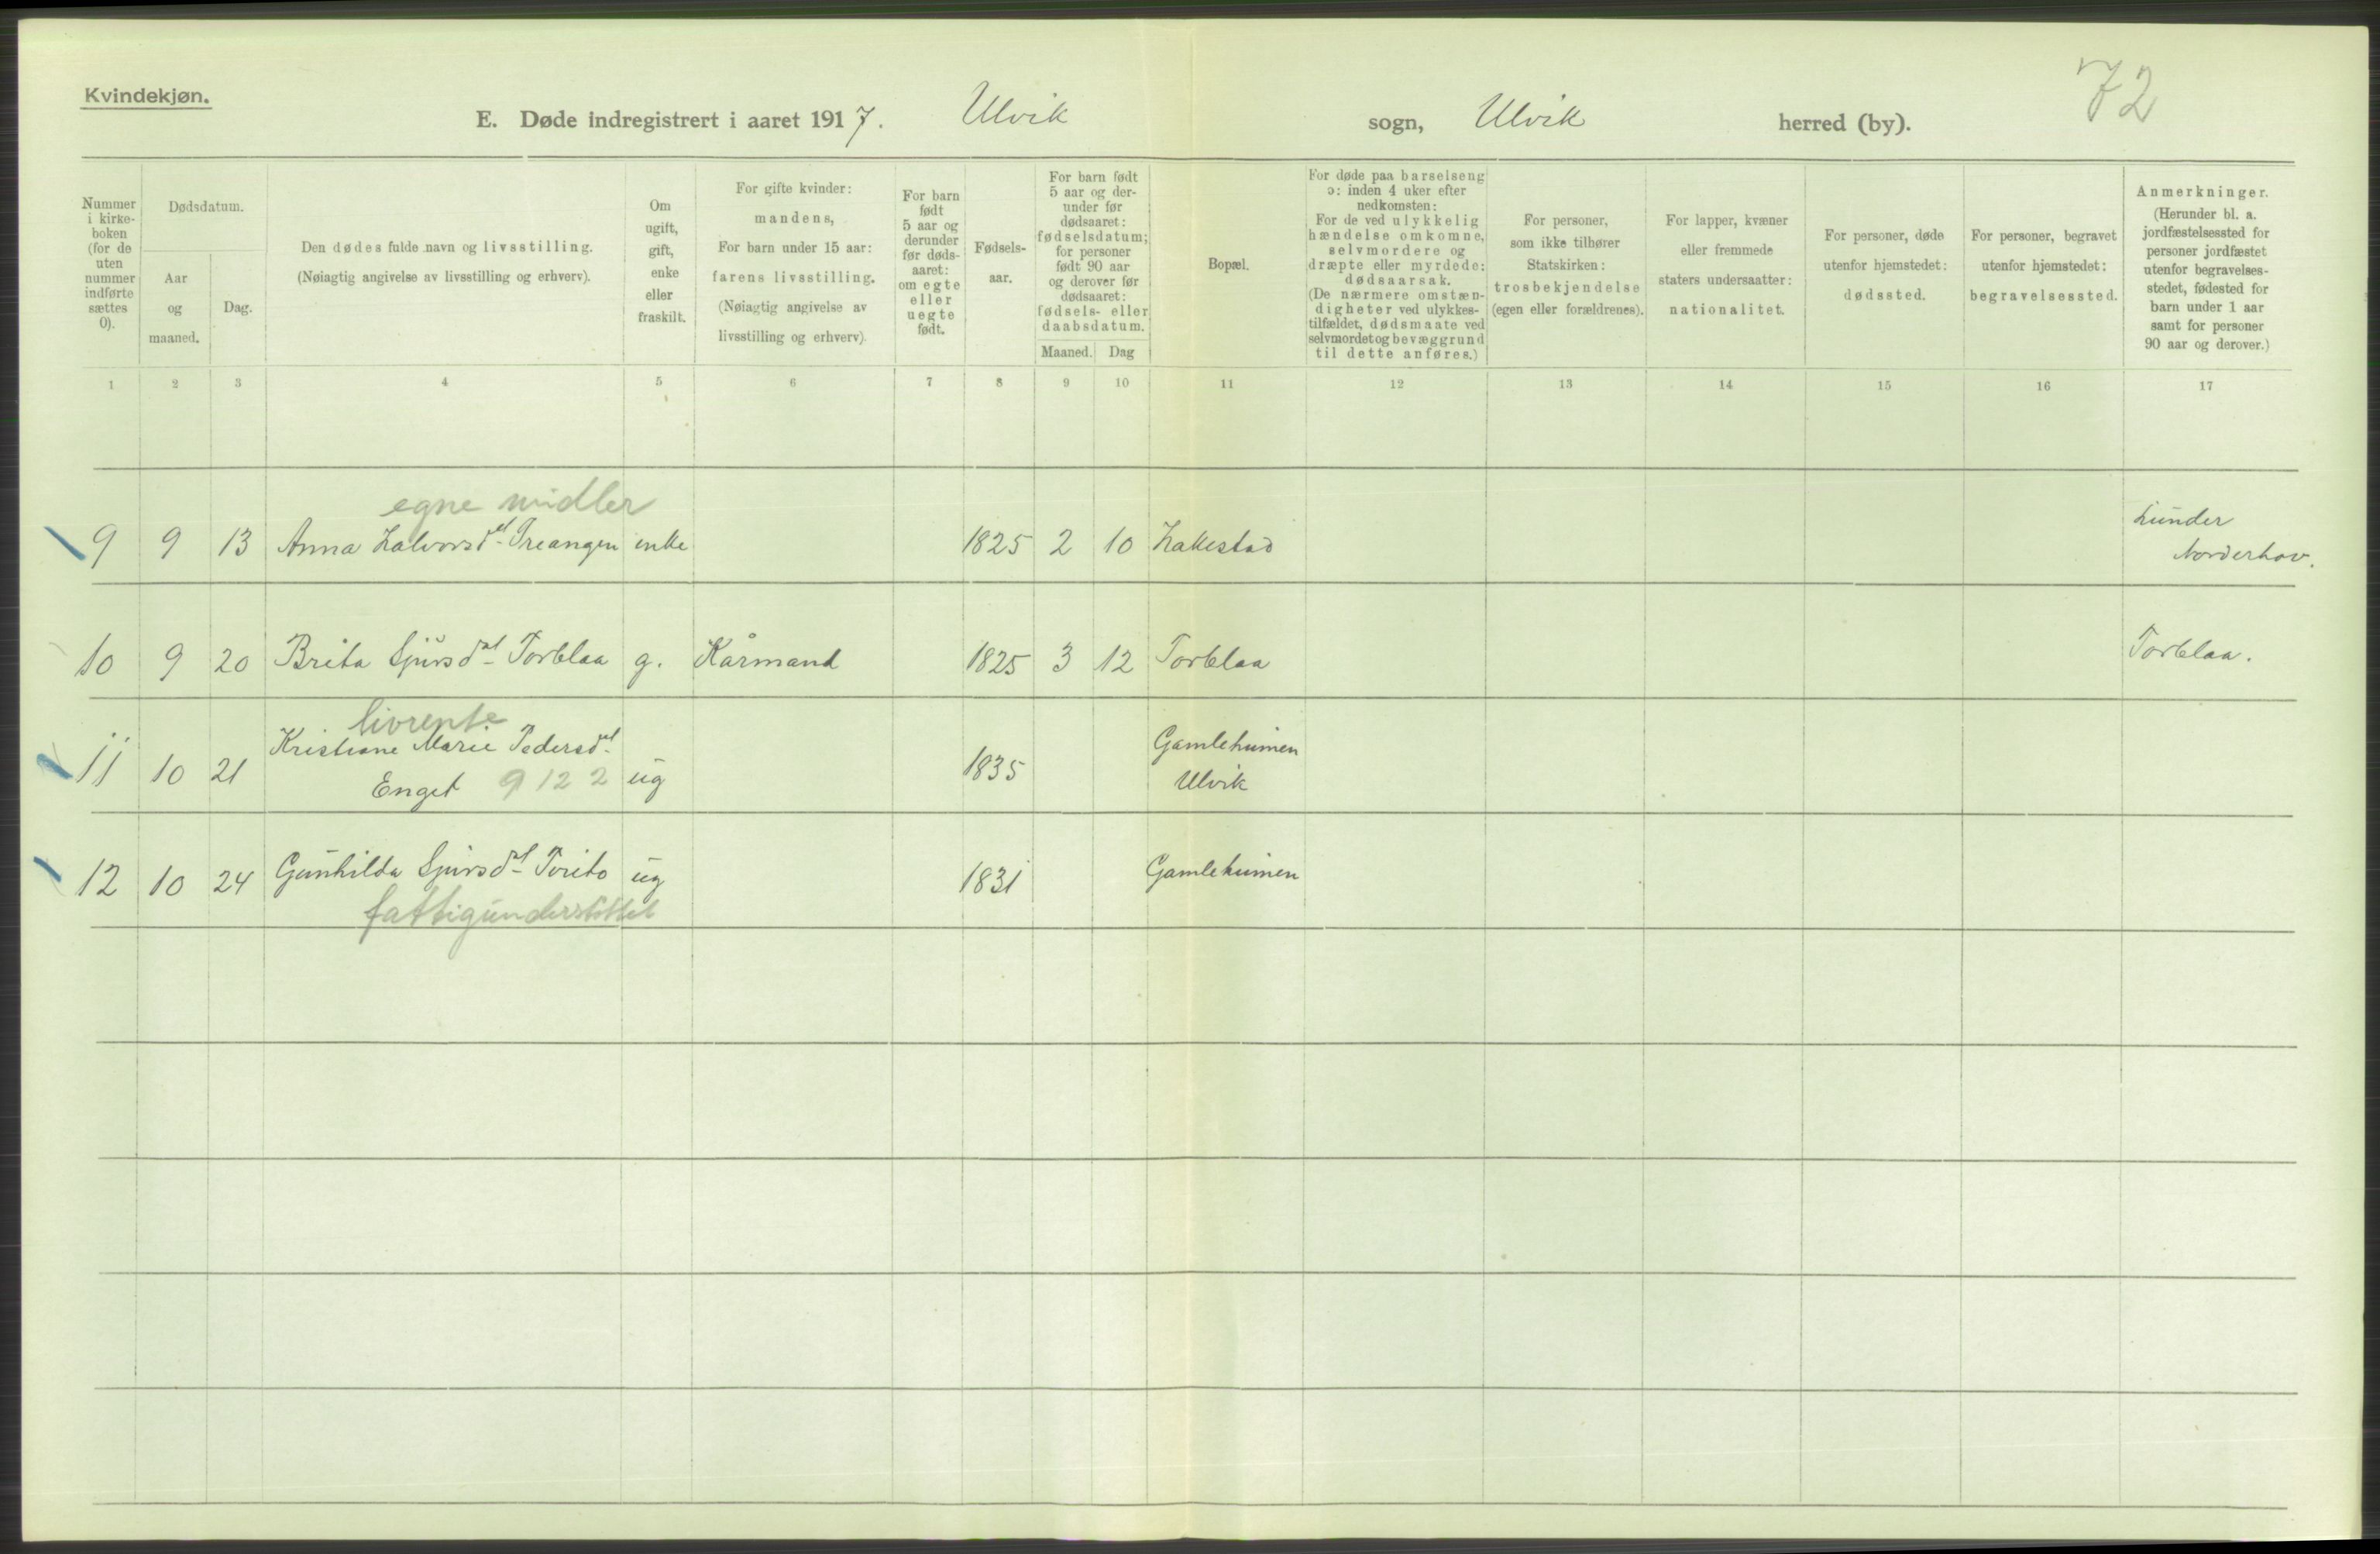 Kvindekjøn.
72
E. Døde indregistrert i aaret 1917. Ulvik sogn, Ulvik herred (by).
Nummer i kirke- boken (for de uten nummer indførte sættes 0).
Dødsdatum.
Aar og maaned.
Dag.
Den dødes fulde navn og livsstilling.
(Nøiagtig angivelse av livsstilling og erhverv).
Om ugift, gift, enke eller fraskilt.
For gifte kvinder:
mandens,
For barn under 15 aar:
farens livsstilling.
(Nøiagtig angivelse av
livsstilling og erhverv).
For barn født 5 aar og derunder før døds- aaret: om egte eller uegte født.
Fødsels- aar.
For barn født 5 aar og der- under før dødsaaret: fødselsdatum; for personer født 90 aar og derover før dødsaaret: fødsels- eller daabsdatum.
Maaned. Dag
Bopæl.
For døde paa barselseng ɔ: inden 4 uker efter nedkomsten:
For de ved ulykkelig hændelse omkomne, selvmordere og dræpte eller myrdede: dødsaarsak.
(De nærmere omstæn- digheter ved ulykkes- tilfældet, dødsmaate ved selvmordet og bevæggrund til dette anføres.)
For personer, som ikke tilhører Statskirken: trosbekjendelse (egen eller forældrenes).
For lapper, kvæner eller fremmede staters undersaatter: nationalitet.
For personer, døde utenfor hjemstedet: dødssted.
For personer, begravet utenfor hjemstedet: begravelsessted.
Anmerkninger.
(Herunder bl. a. jordfæstelsessted for personer jordfæstet utenfor begravelses- stedet, fødested for barn under 1 aar samt for personer 90 aar og derover.)
1 2 3 4 5 6 7 8 9 10 11 12 13 14 15 16 17
egne midler
9 9 13 Anna Halvorsdtl Treangen enke 1825 2 10 Hakestad Lunder
Norderhov.
10 9 20 Brita Sjursdtl Torblaa g. Kårmand 1825 3 12 Torblaa Torblaa.
livrente
11 10 21 Kristiane Marie Pedersdtl
Enget 9 12 2 ug 1835 Gamleheimen
Ulvik
12 10 24 Gunhilda Sjursdtl Tveito ug 1831 Gamleheimen
fattigunderstøttet